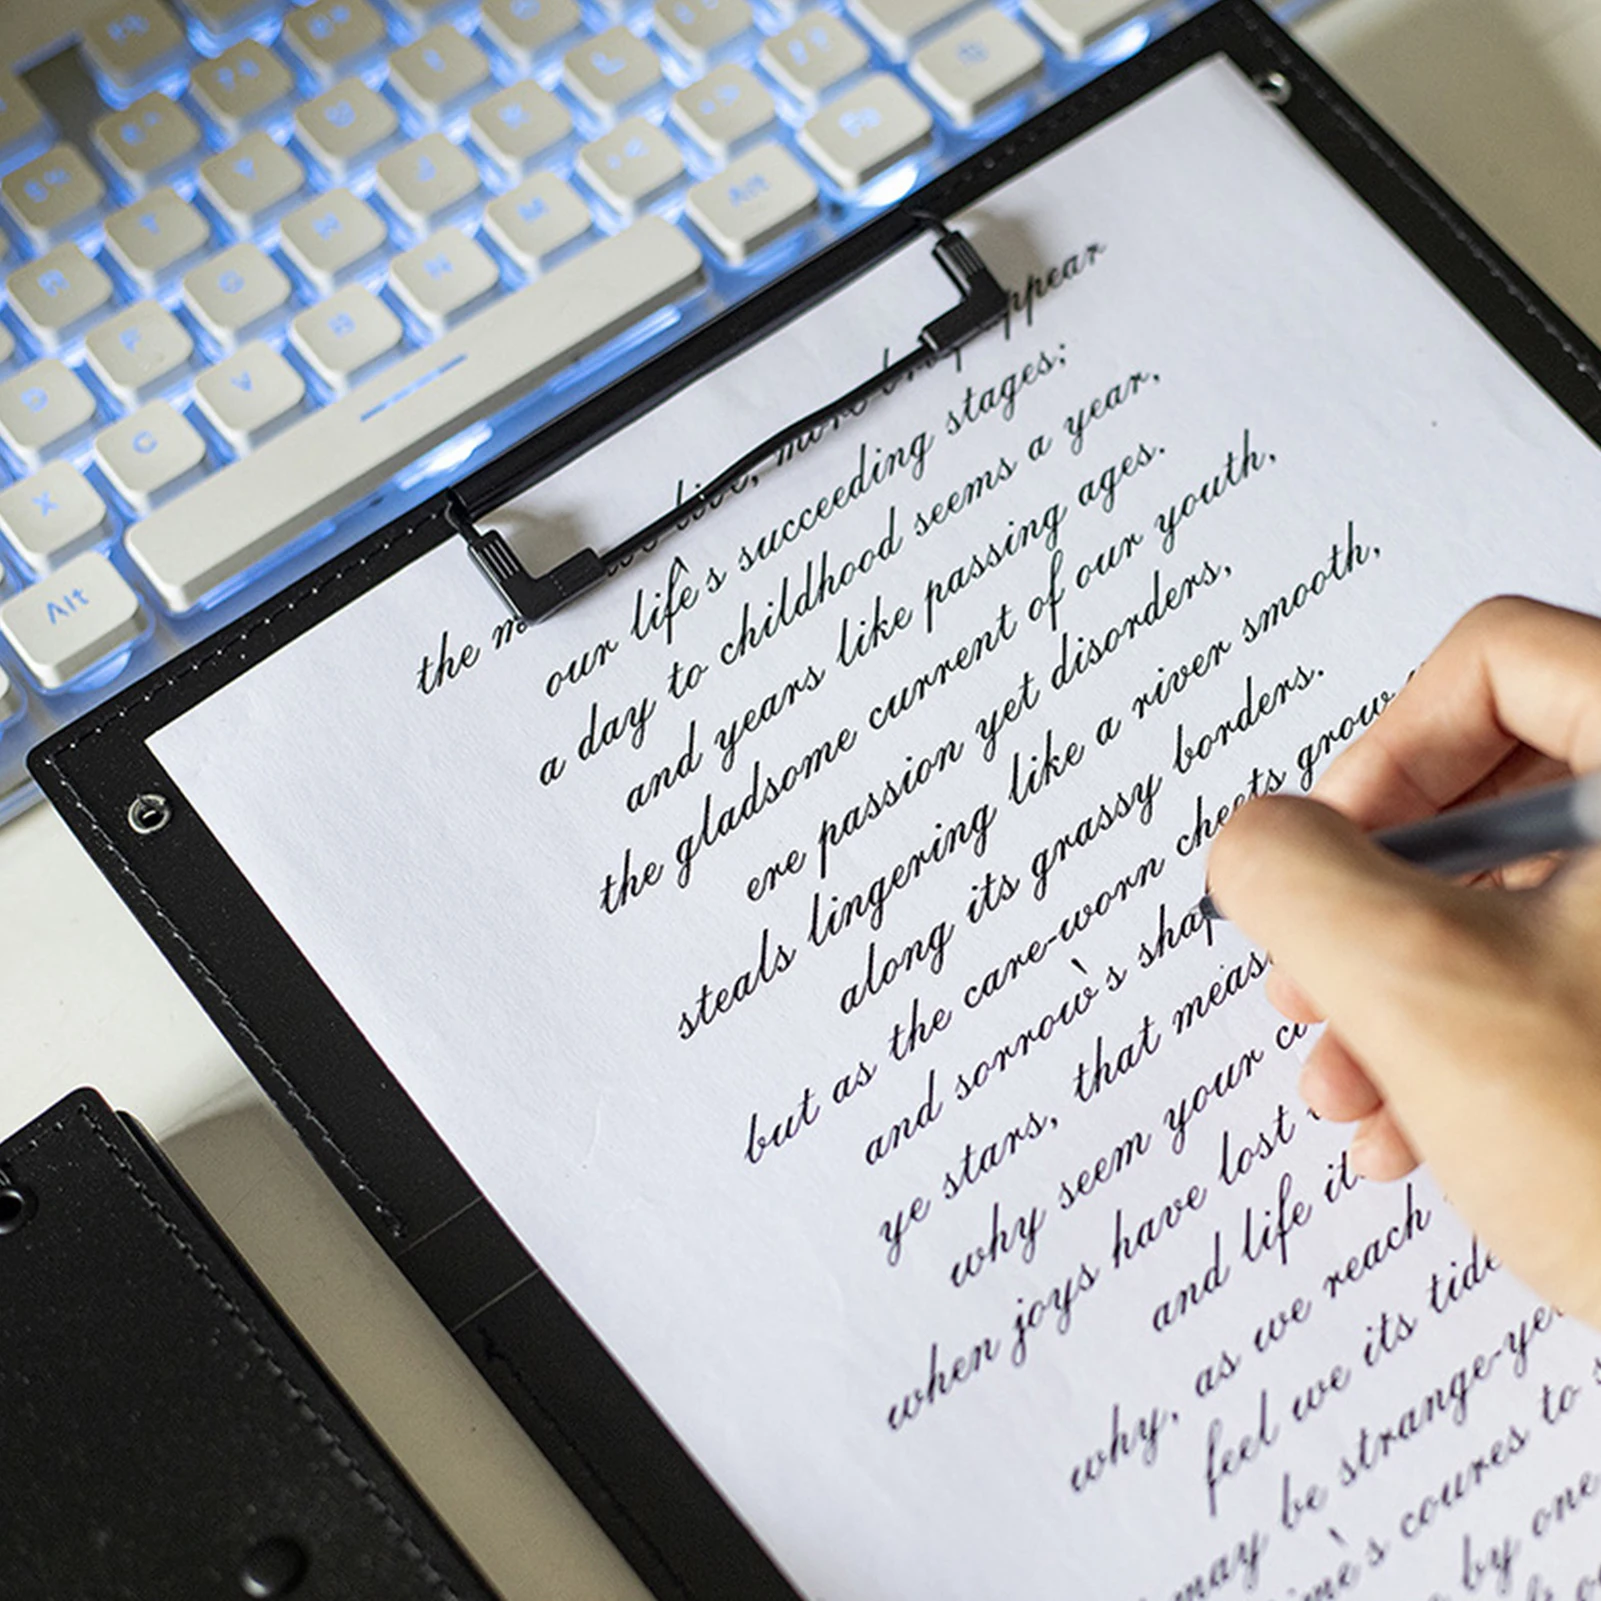 the we live, more appear
our life's succeeding stages;
a day to childhood seems a year,
and years like passing ages.
the gladsome current of our youth,
ere passion yet disorders,
steals lingering like a river smooth,
along its grassy borders.
but as the care-worn cheets grow
and sorrow's
ye stars, that
why seem your
when joys have lost
and life
why, as we reach
feel we its
may be strange-
coures to
by one
Alt
Alt
Fn
X
C
V
B
N
M
D
F
G
H
J
K
L
R
T
Y
U
I